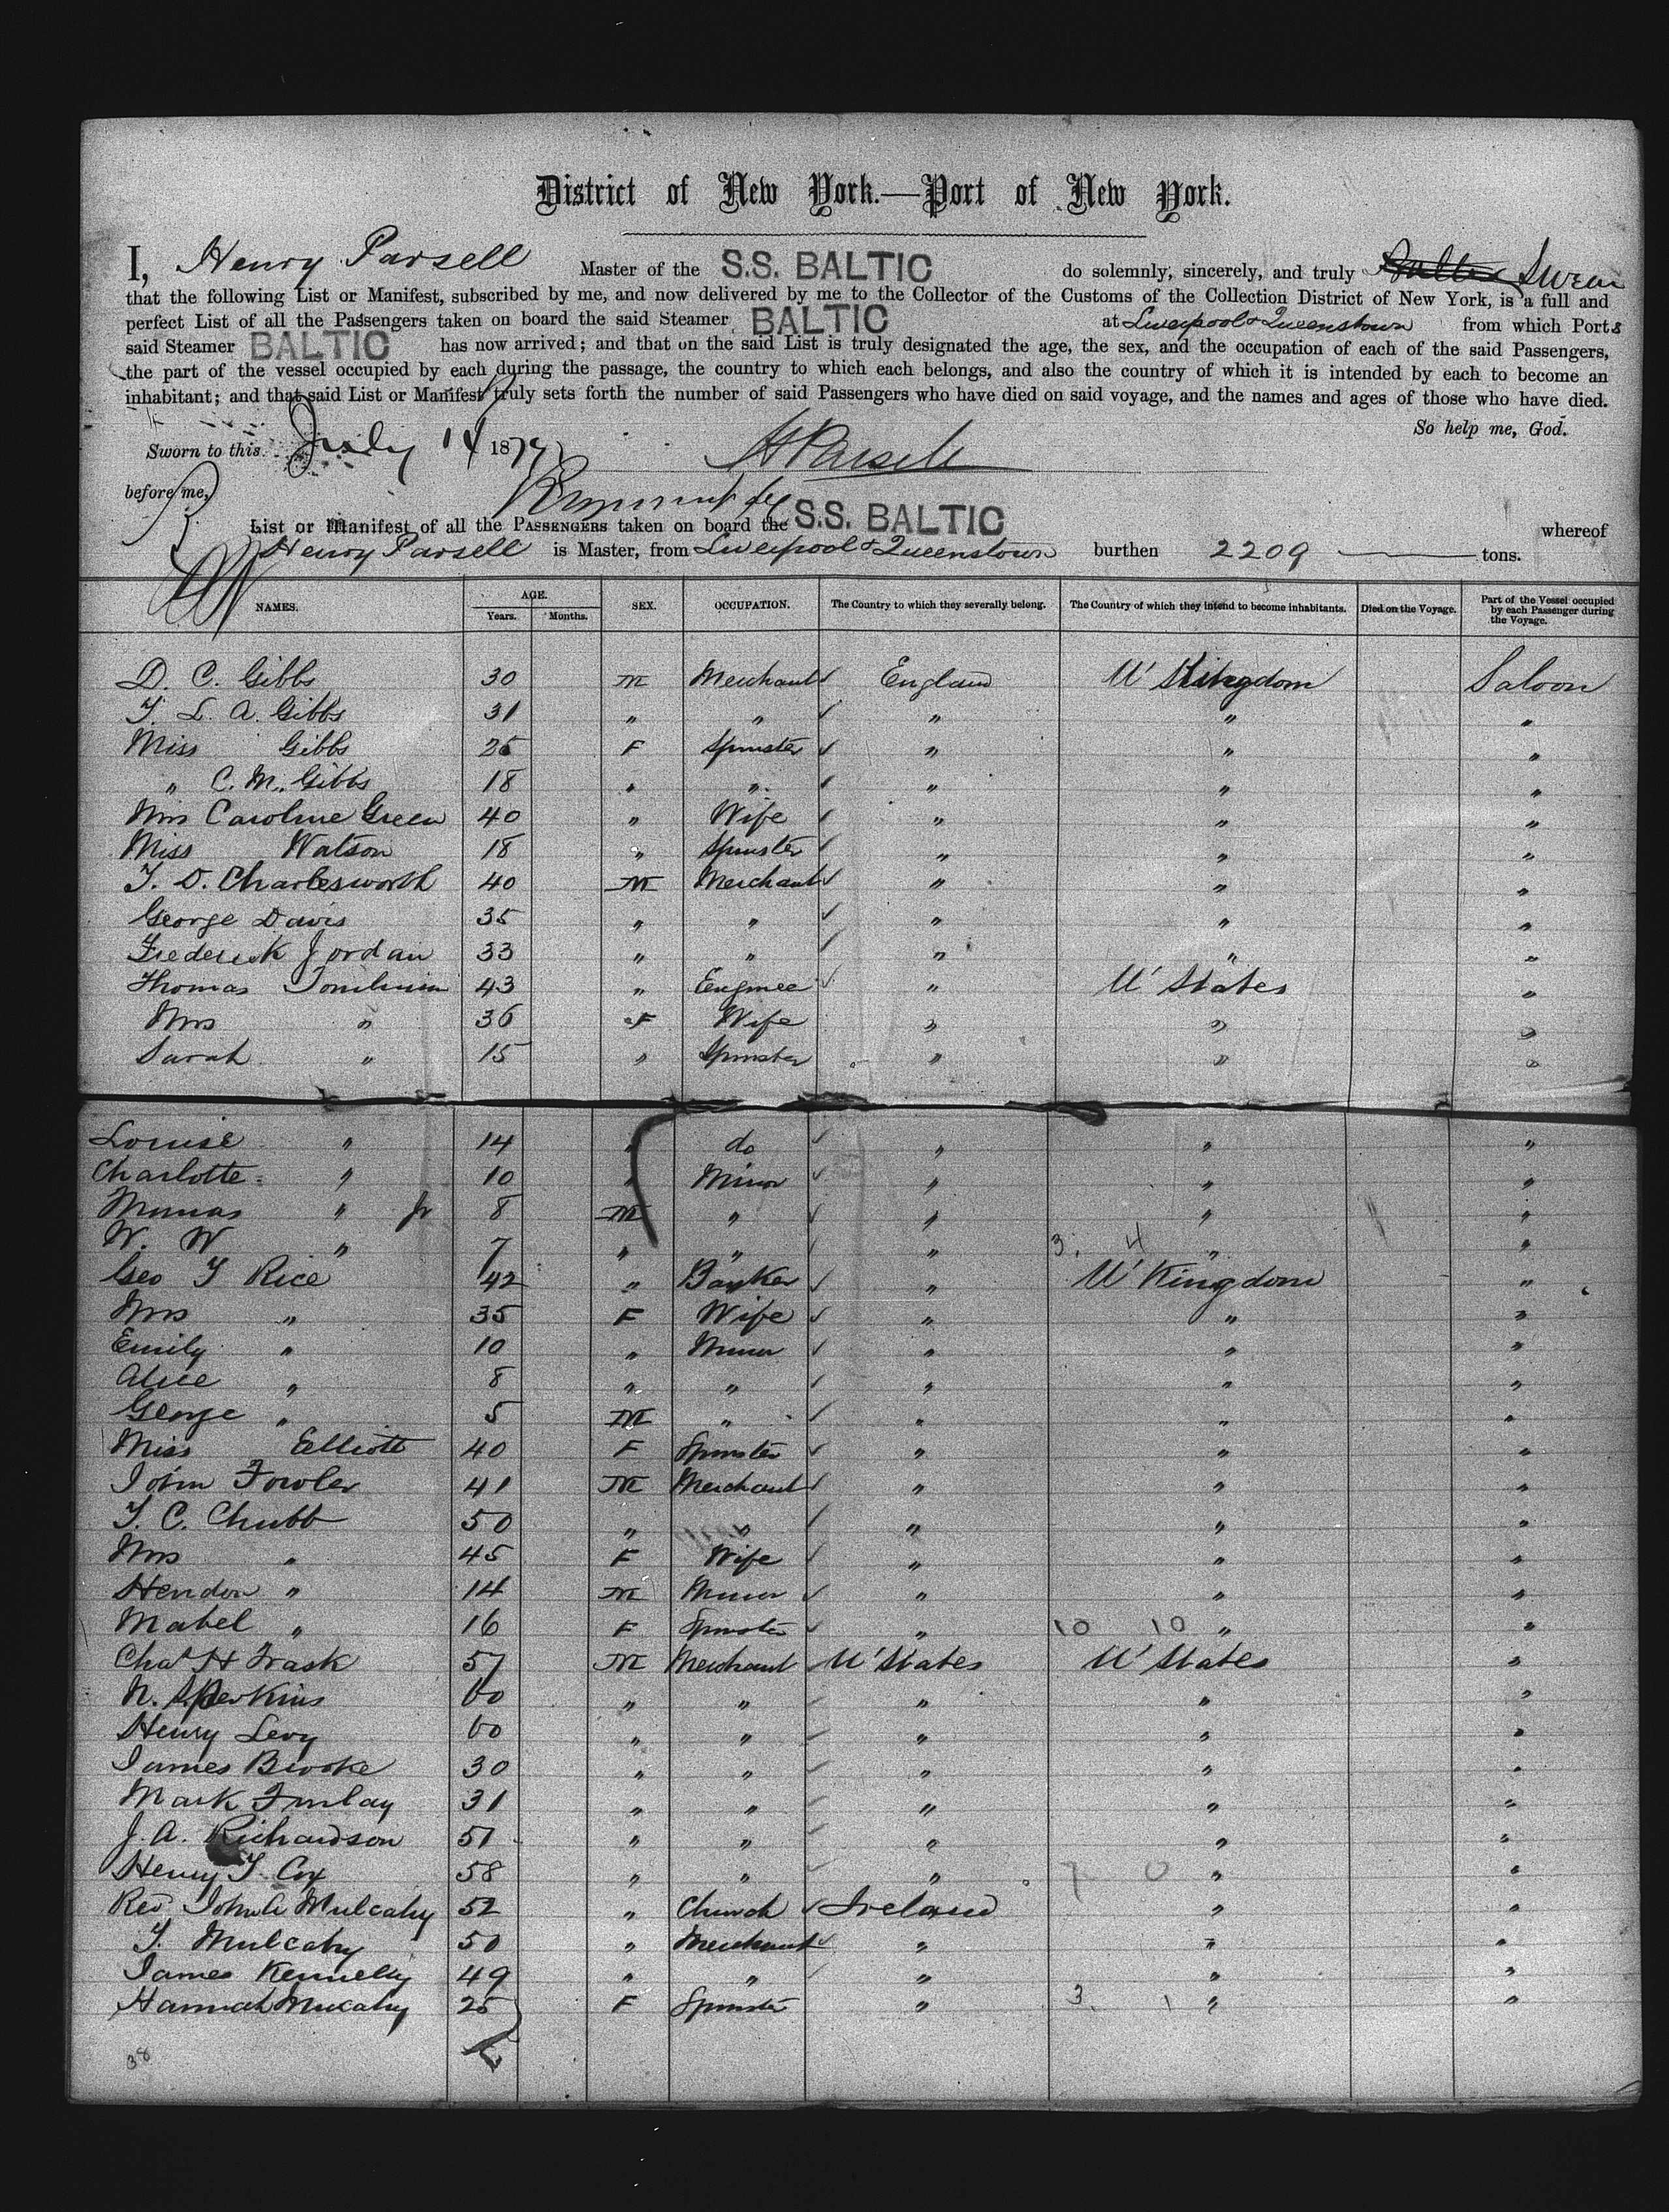 District of New York.—Port of New York.
I, Henry Parsell Master of the S.S. BALTIC do solemnly, sincerely, and truly Swear
that the following List or Manifest, subscribed by me, and now delivered by me to the Collector of the Customs of the Collection District of New York, is a full and
perfect List of all the Passengers taken on board the said Steamer BALTIC at Liverpool & Queenstown from which Ports
said Steamer BALTIC has now arrived; and that on the said List is truly designated the age, the sex, and the occupation of each of the said Passengers,
the part of the vessel occupied by each during the passage, the country to which each belongs, and also the country of which it is intended by each to become an
inhabitant; and that said List or Manifest truly sets forth the number of said Passengers who have died on said voyage, and the names and ages of those who have died.
So help me, God.
Sworn to this July 14 1879 H Parsell
before me,
List or Manifest of all the PASSENGERS taken on board the S.S. BALTIC whereof
Henry Parsell is Master, from Liverpool & Queenstown burthen 2209 tons.
NAMES. AGE. Years. Months. SEX. OCCUPATION. The Country to which they severally belong. The Country of which they intend to become inhabitants. Died on the Voyage. Part of the Vessel occupied by each Passenger during the Voyage.
D. C. Gibbs 30 M Merchant England U' Kingdom Saloon
T. L. A. Gibbs 31 " " " " "
Miss Gibbs 25 F Spinster " " "
" C. M. Gibbs 18 " " " " "
Mrs Caroline Green 40 " Wife " " "
Miss Watson 18 " Spinster " " "
T. D. Charlesworth 40 M Merchant " " "
George Davis 35 " " " " "
Frederick Jordan 33 " " " " "
Thomas Tomlinson 43 " Engineer " U' States "
Mrs " 36 F Wife " " "
Sarah " 15 " Spinster " " "
Louise " 14 " do " " "
Charlotte " 10 " Minor " " "
" Jr 8 M " " " "
W. W " 7 " " " 3. 4 " "
Geo T Rice 42 " Banker " U' Kingdom "
Mrs " 35 F Wife " " "
Emily " 10 " Minor " " "
Alice " 8 " " " " "
George " 5 M " " " "
Miss Elliott 40 F Spinster " " "
John Fowler 41 M Merchant " " "
T. C. Chubb 50 " " " " "
Mrs " 45 F Wife " " "
Hendon " 14 M Minor " " "
Mabel " 16 F Spinster " 10 10 " "
Chas H Trask 57 M Merchant U' States U' States "
N. Perkins 60 " " " " "
Henry Levy 60 " " " " "
James Brooke 30 " " " " "
Mark Finlay 31 " " " " "
J. A. Richardson 51 " " " " "
Henry T. Cox 58 " " " 7 0 " "
Rev John Mulcahy 52 " Church Ireland " "
T. Mulcahy 50 " Merchant " " "
James Kennelly 49 " " " " "
Hannah Mulcahy 25 F Spinster " 3. 1 " "
38